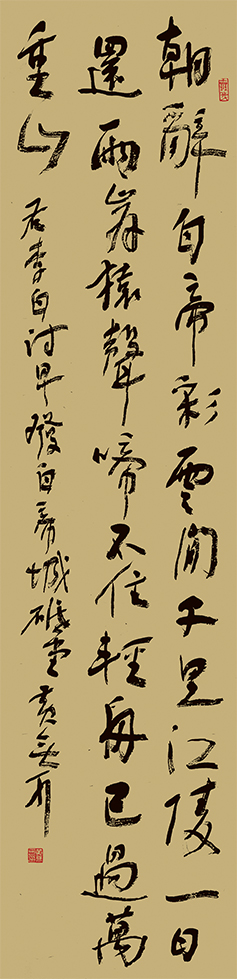 朝辭白帝彩雲間千里江陵一日
還兩岸猿聲啼不住輕舟已過萬
重山 右李白詩早發白帝城